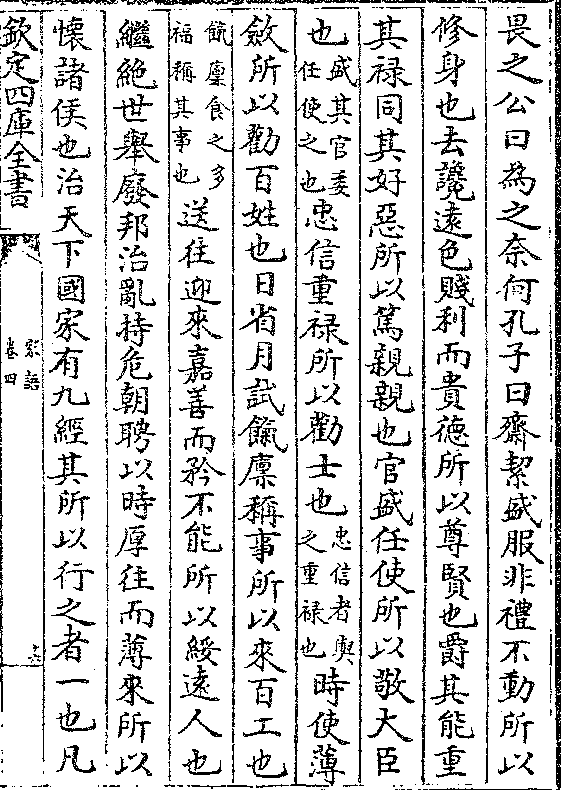 畏之公曰為之奈何孔子曰齋潔盛服非禮不動所以
修身也去讒遠色賤利而貴德所以尊賢也爵其能重
其祿同其好惡所以篤親親也官盛任使所以敬大臣
也盛其官委任使之也忠信重祿所以勸士也忠信者與之重祿也時使薄
斂所以勸百姓也日省月試餼廩稱事所以來百工也
餼廩食之多福稱其事也送往迎來嘉善而矜不能所以綏遠人也
繼絶世舉廢邦治亂持危朝聘以時厚往而薄來所以
懷諸侯也治天下國家有九經其所以行之者一也凡
欽定四庫全書
家語
卷四